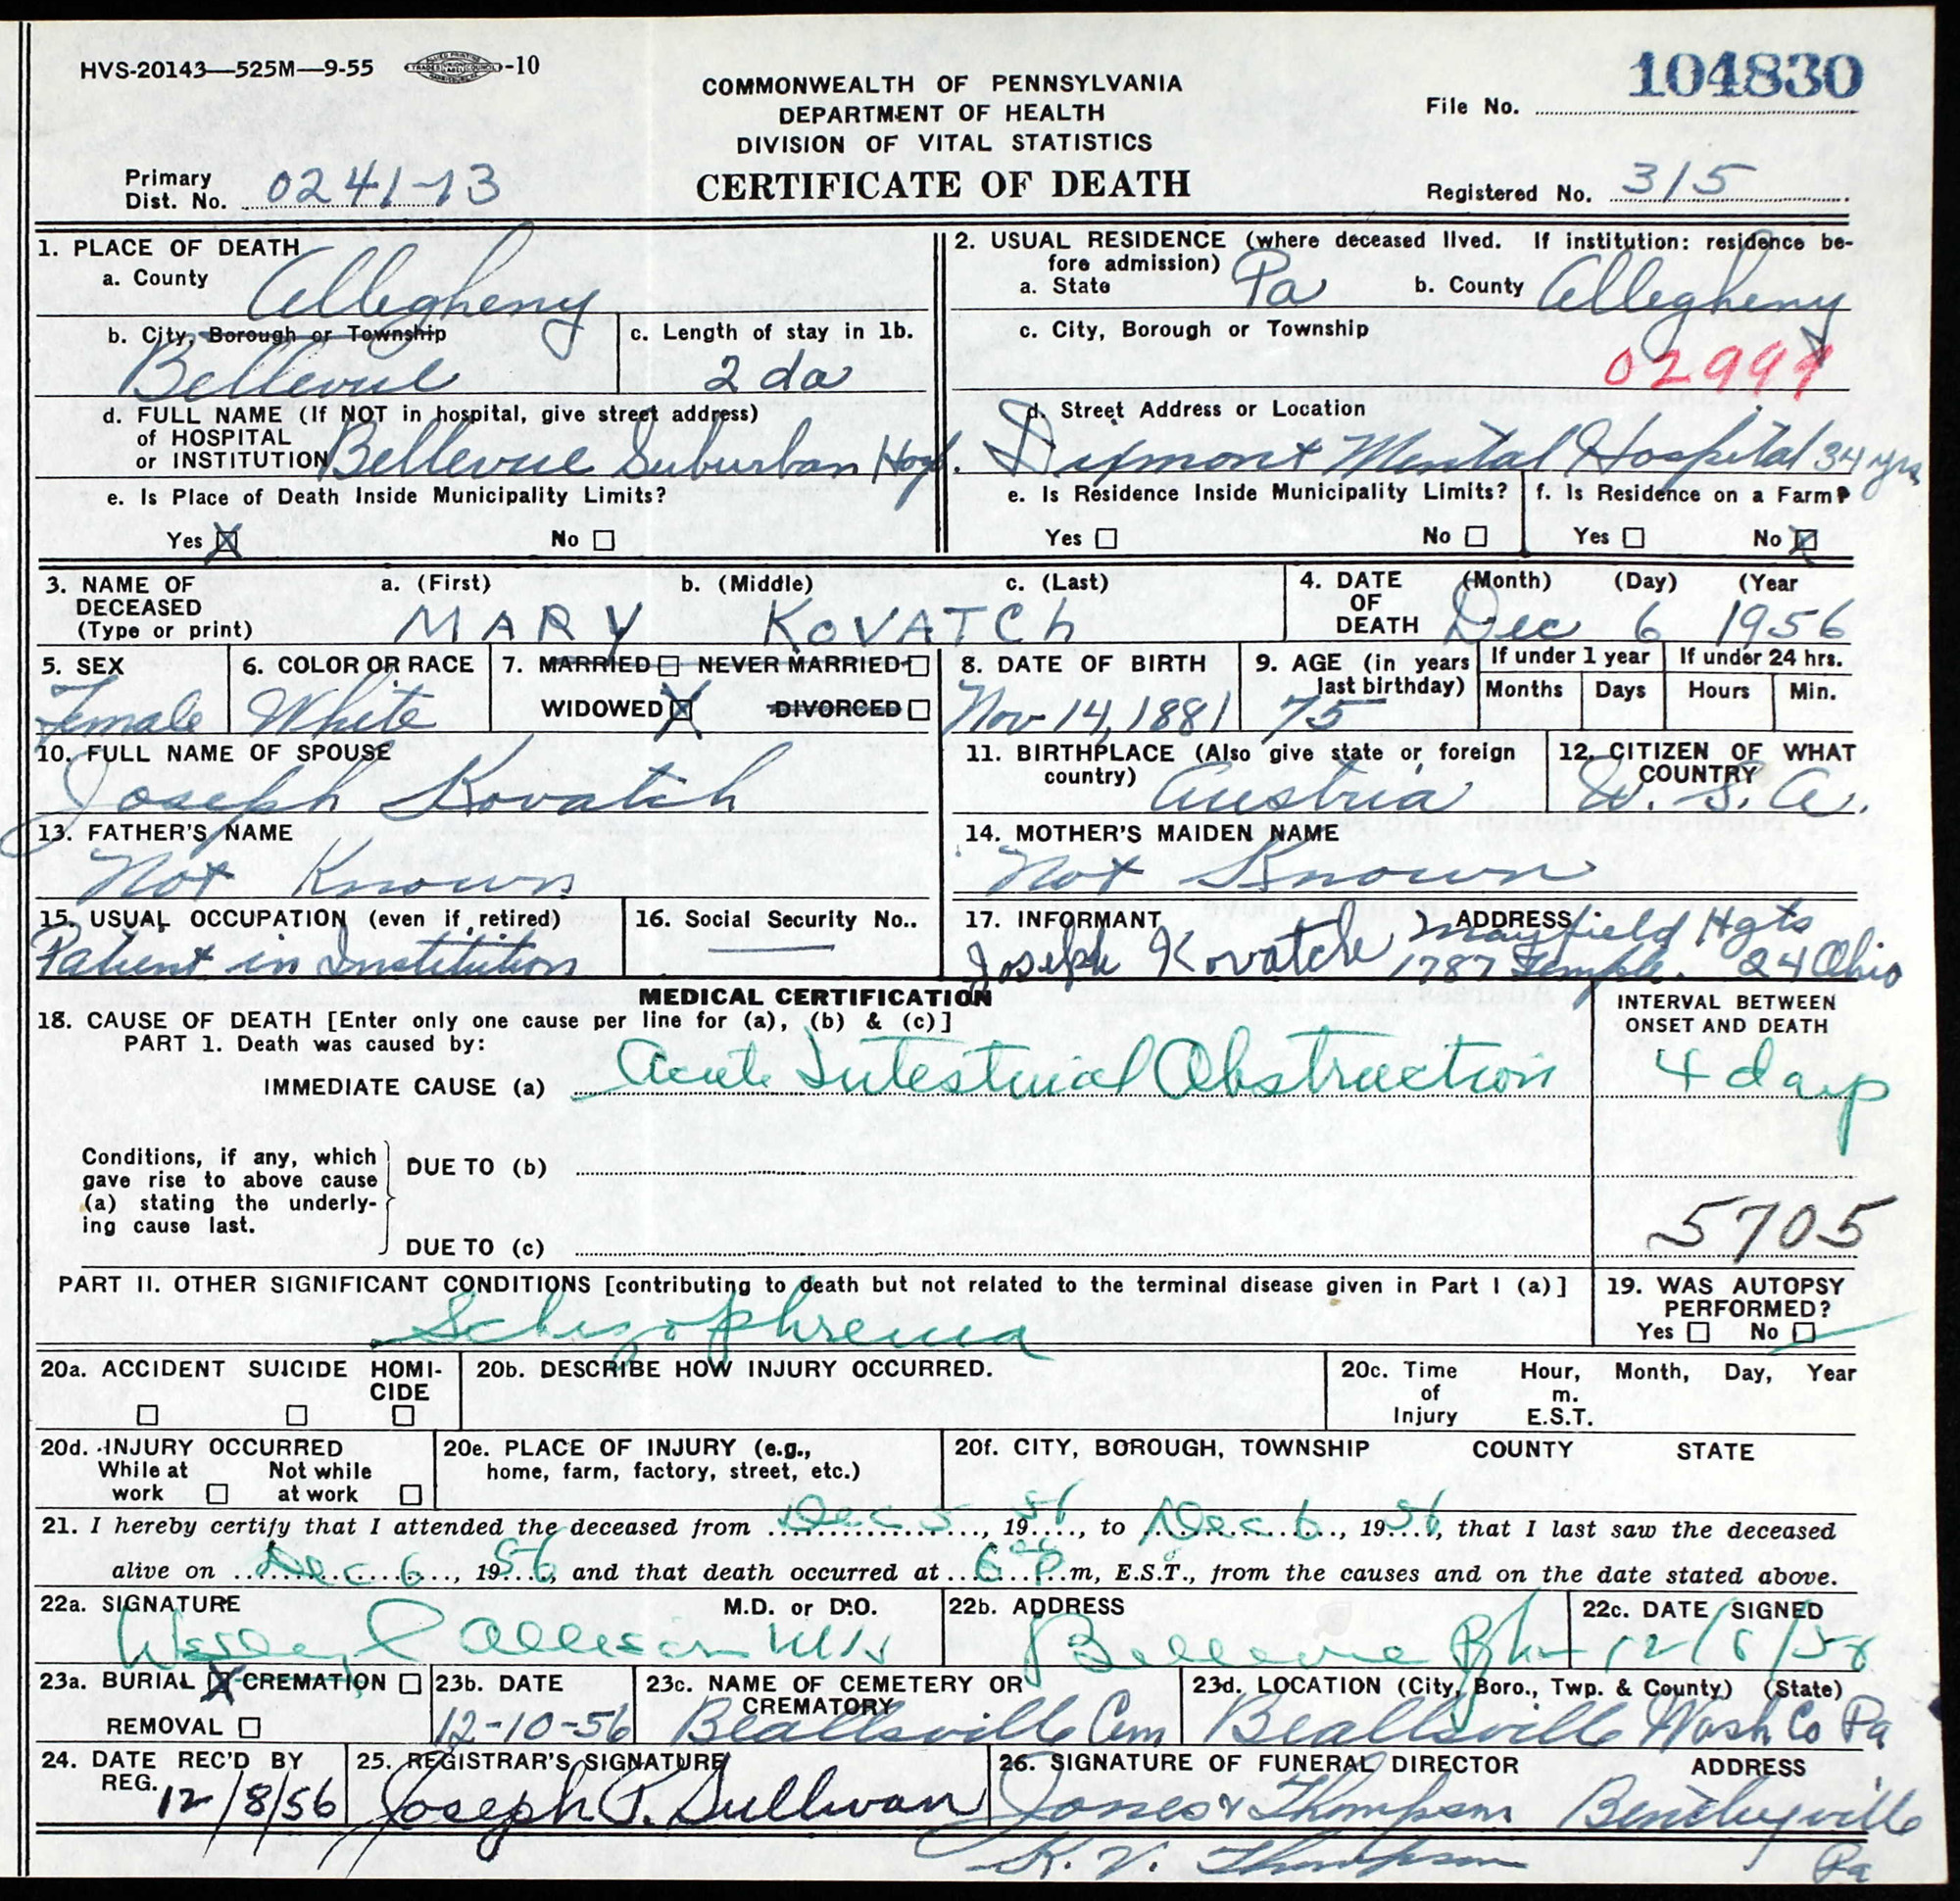 HVS-20143—525M—9-55 -10
104830
COMMONWEALTH OF PENNSYLVANIA
DEPARTMENT OF HEALTH
DIVISION OF VITAL STATISTICS
CERTIFICATE OF DEATH
File No.
Primary Dist. No. 0241-13
Registered No. 315
1. PLACE OF DEATH
a. County Allegheny
b. City, Borough or Township Bellevue
c. Length of stay in 1b. 2 da
d. FULL NAME (If NOT in hospital, give street address)
of HOSPITAL
or INSTITUTION Bellevue Suburban Hosp.
e. Is Place of Death Inside Municipality Limits?
Yes No
2. USUAL RESIDENCE (where deceased lived. If institution: residence be-
fore admission)
a. State Pa b. County Allegheny
c. City, Borough or Township
02999
d. Street Address or Location
Dixmont Mental Hospital 34 yrs
e. Is Residence Inside Municipality Limits?
Yes No
f. Is Residence on a Farm?
Yes No
3. NAME OF DECEASED (Type or print)
a. (First) b. (Middle) c. (Last)
MARY KOVATCh
4. DATE OF DEATH (Month) (Day) (Year
Dec 6 1956
5. SEX
Female
6. COLOR OR RACE
White
7. MARRIED NEVER MARRIED
WIDOWED DIVORCED
8. DATE OF BIRTH
Nov 14, 1881
9. AGE (in years last birthday)
75
If under 1 year
Months Days
If under 24 hrs.
Hours Min.
10. FULL NAME OF SPOUSE
Joseph Kovatch
11. BIRTHPLACE (Also give state or foreign
country) Austria
12. CITIZEN OF WHAT
COUNTRY
U. S. A.
13. FATHER'S NAME
Not Known
14. MOTHER'S MAIDEN NAME
Not Known
15. USUAL OCCUPATION (even if retired)
Patient in Institution
16. Social Security No..
17. INFORMANT ADDRESS
Joseph Kovatch 1787 Temple. Mayfield Hgts 24 Ohio
MEDICAL CERTIFICATION
18. CAUSE OF DEATH [Enter only one cause per line for (a), (b) & (c)]
PART 1. Death was caused by:
IMMEDIATE CAUSE (a) Acute Intestinal Obstruction
INTERVAL BETWEEN
ONSET AND DEATH
4 days
Conditions, if any, which
gave rise to above cause
(a) stating the underly-
ing cause last.
DUE TO (b)
DUE TO (c)
5705
PART II. OTHER SIGNIFICANT CONDITIONS [contributing to death but not related to the terminal disease given in Part I (a)]
Schizophrenia
19. WAS AUTOPSY
PERFORMED?
Yes No
20a. ACCIDENT SUICIDE HOMI-
CIDE
20b. DESCRIBE HOW INJURY OCCURRED.
20c. Time of Injury
Hour, Month, Day, Year
m.
E.S.T.
20d. INJURY OCCURRED
While at work Not while at work
20e. PLACE OF INJURY (e.g.,
home, farm, factory, street, etc.)
20f. CITY, BOROUGH, TOWNSHIP COUNTY STATE
21. I hereby certify that I attended the deceased from Dec 5, 1956, to Dec 6, 1956, that I last saw the deceased
alive on Dec 6, 1956, and that death occurred at 6 P m, E.S.T., from the causes and on the date stated above.
22a. SIGNATURE M.D. or D.O.
Allison MD
22b. ADDRESS
Bellevue Pgh
22c. DATE SIGNED
12/6/56
23a. BURIAL CREMATION
REMOVAL
23b. DATE
12-10-56
23c. NAME OF CEMETERY OR
CREMATORY
Beallsville Cem
23d. LOCATION (City, Boro., Twp. & County) (State)
Beallsville Wash Co Pa
24. DATE REC'D BY
REG. 12/8/56
25. REGISTRAR'S SIGNATURE
Joseph P. Sullivan
26. SIGNATURE OF FUNERAL DIRECTOR ADDRESS
Jones & Thompson Bentleyville
K. V. Thompson Pa